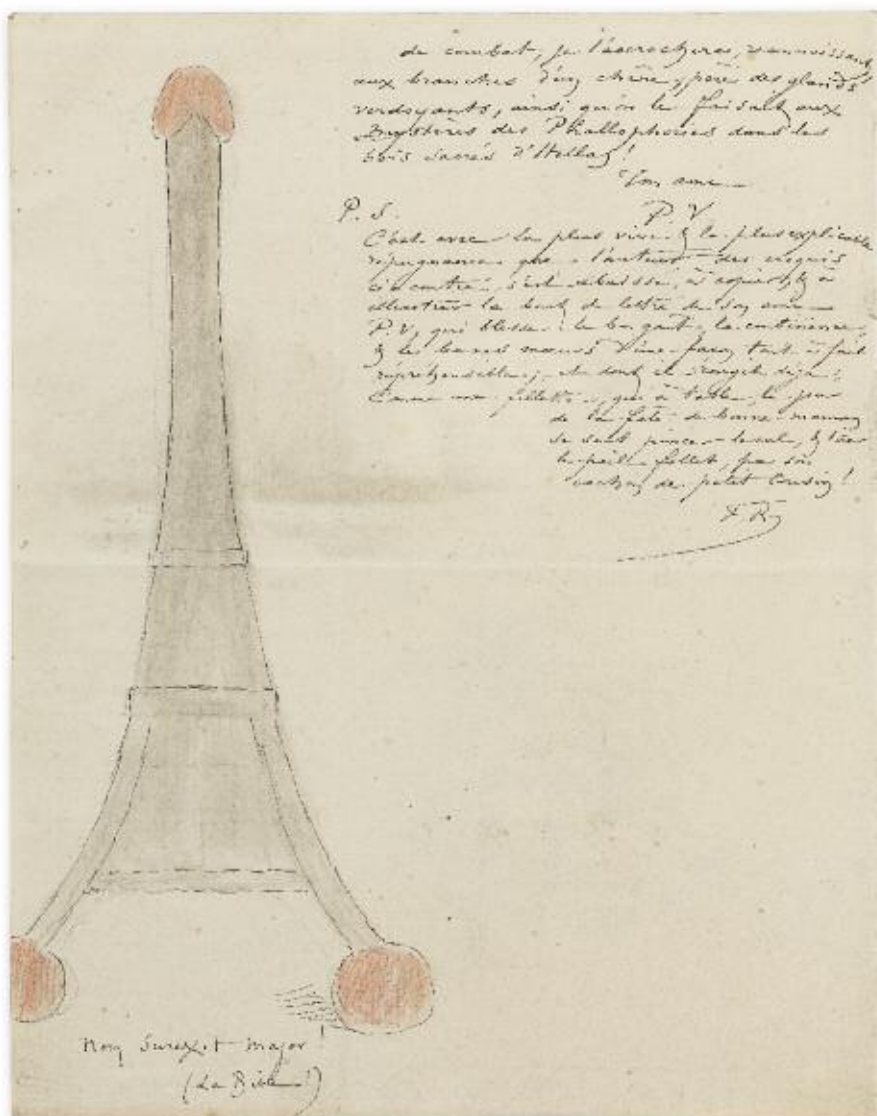 de combat, je l'accrocherai, reconnaissant,
aux branches d'un chêne, paré des glands
verdoyants, ainsi qu'on le faisait aux
Mystères des Phallophories dans les
bois sacrés d'Hellas!
Ton ami
P. V
P. S.
C'est avec la plus vive & la plus explicable
répugnance que l'auteur des croquis
ci contre, s'est abaissé, à copier, & à
illustrer le bout de lettre de son ami
P. V, qui blesse: le bon goût, la continence,
& les bonnes mœurs d'une façon tout à fait
répréhensible; et dont il rougit déjà,
Comme une fillette, qui à table, le jour
de la fête de bonne-maman
se sent pincer le cul, & tirer
le poil follet, par son
cochon de petit Cousin!
F. R
Non Surexit major!
(La Bible!)